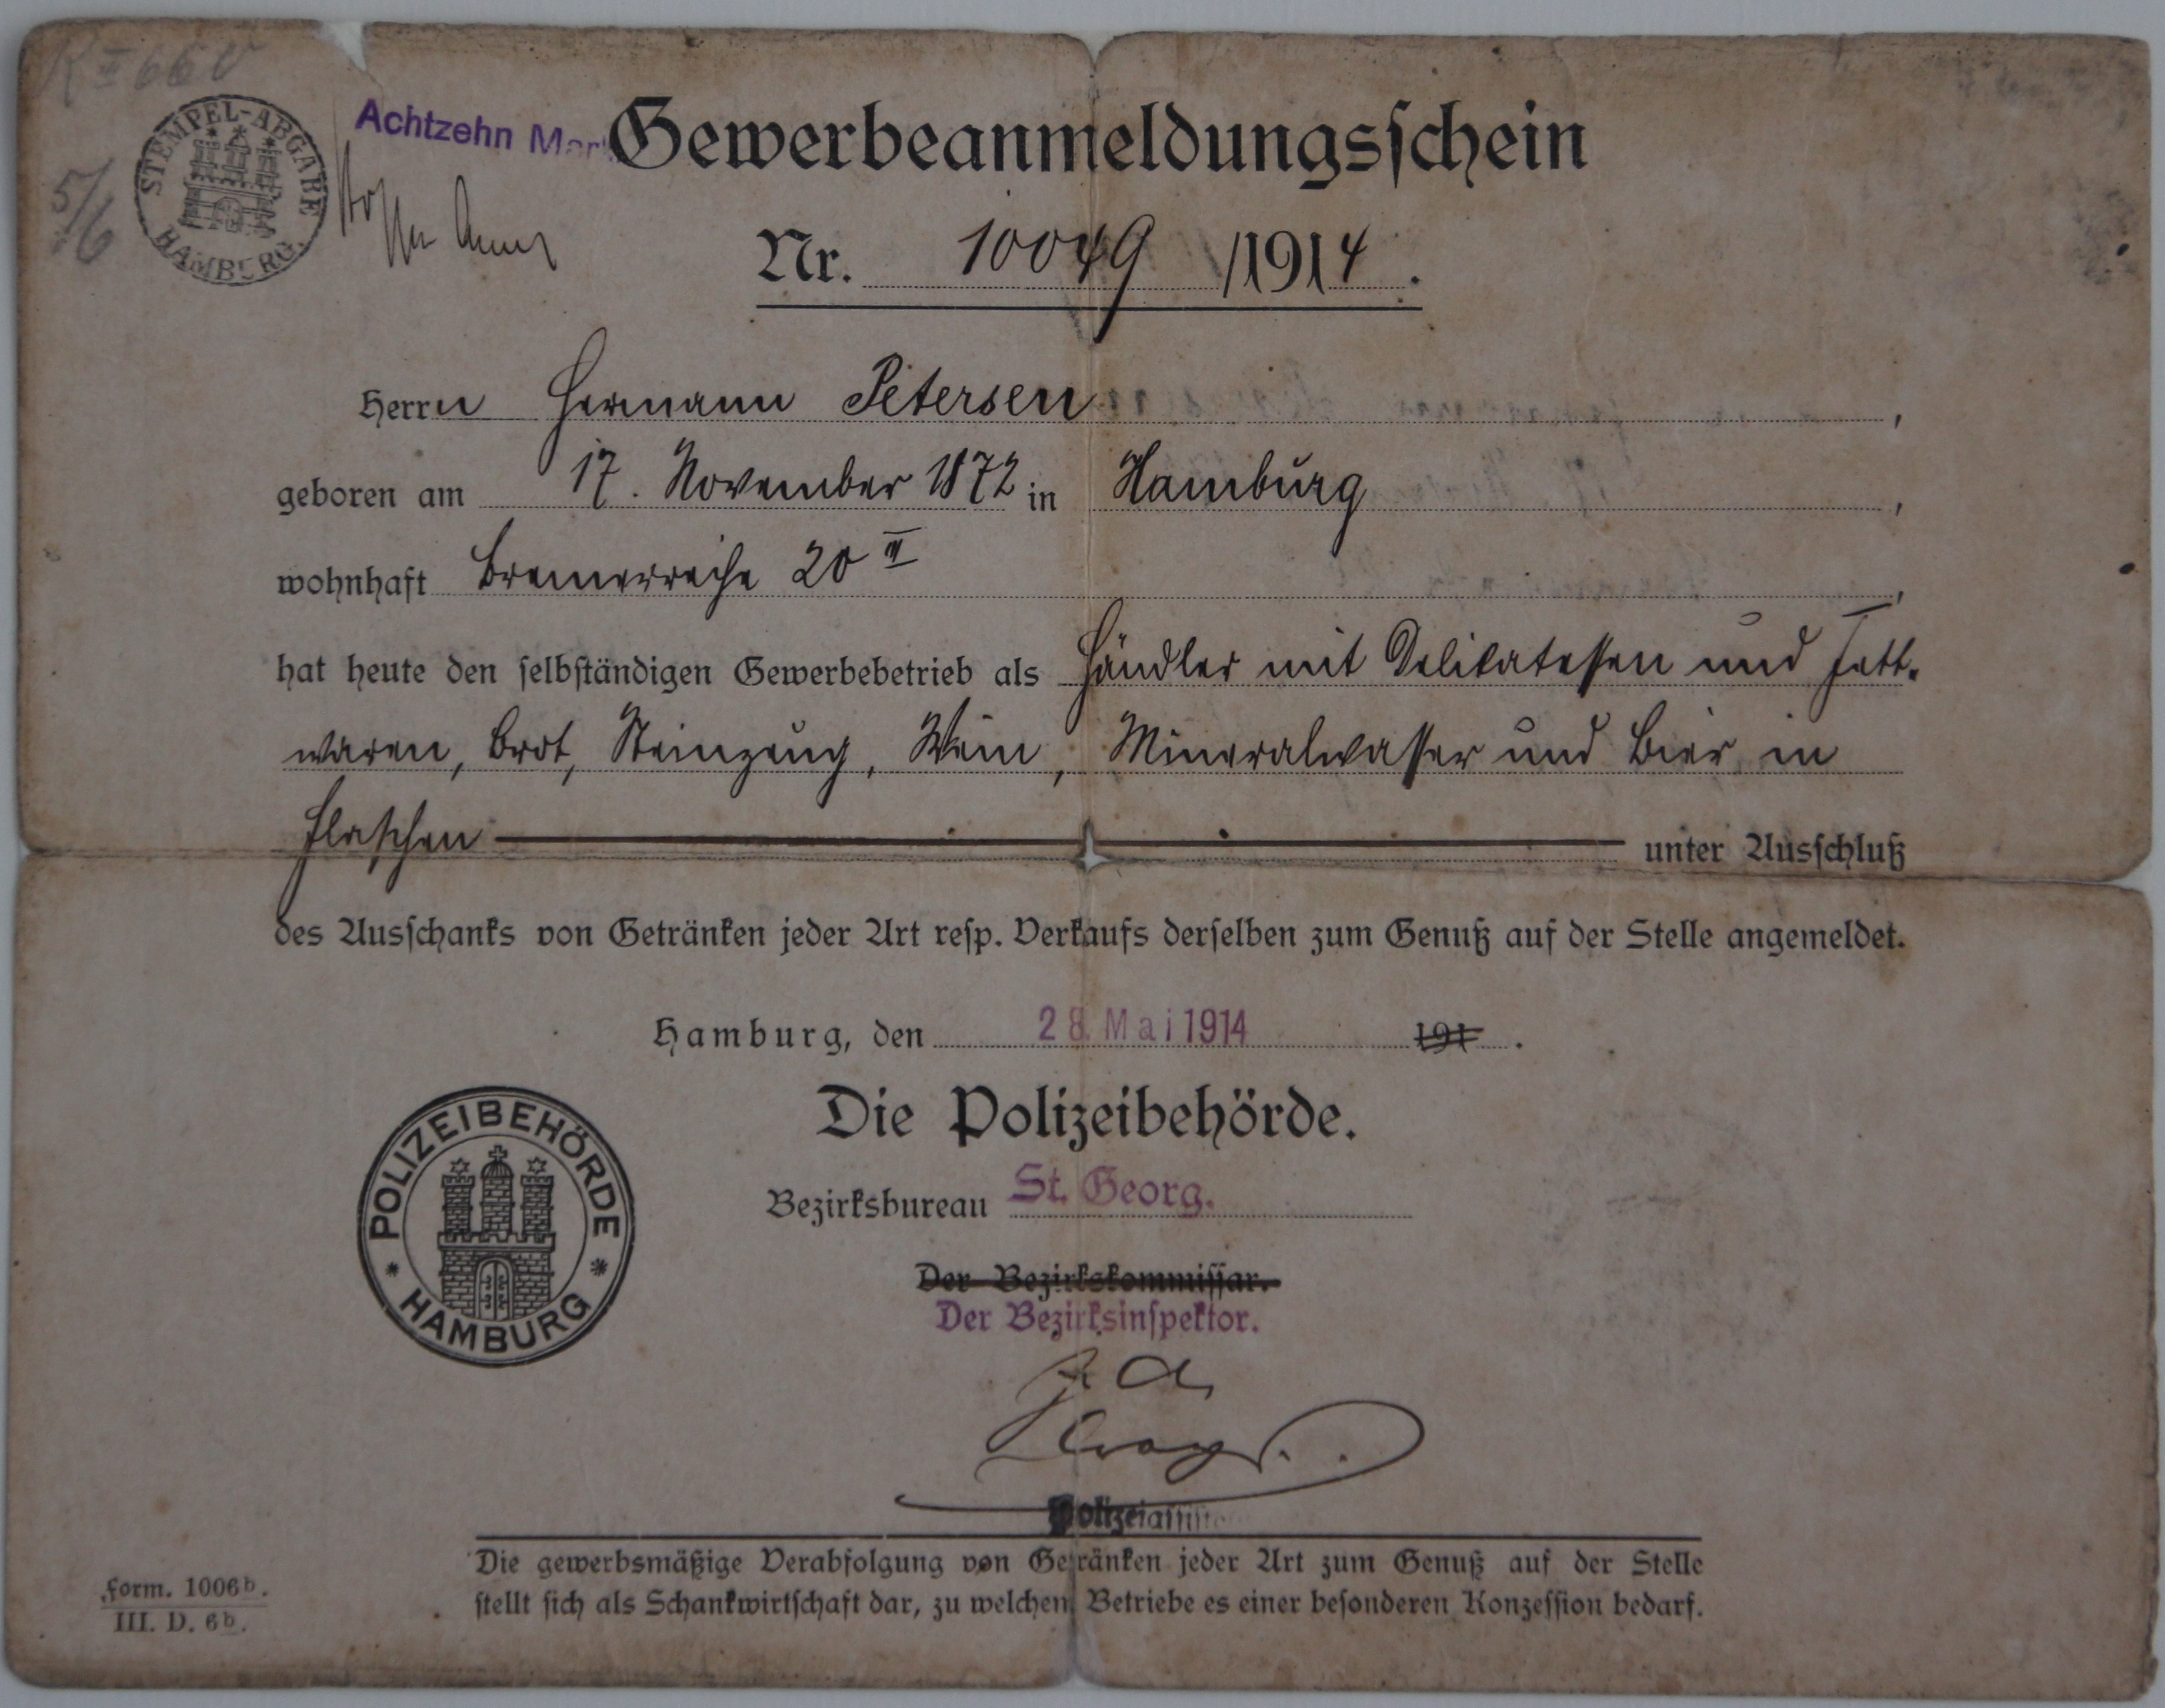 K II 66
5/6
STEMPEL-ABGABE
HAMBURG.
Achtzehn Mark
Gewerbeanmeldungsschein
Nr. 10049 /1914.
Herrn Hermann Petersen,
geboren am 17. November 1872 in Hamburg,
wohnhaft Bremerreihe 20 II,
hat heute den selbständigen Gewerbebetrieb als Händler mit Delikatessen und Fett-
waren, Brot, Steinzeug, Wein, Mineralwasser und Bier in
Flaschen unter Ausschluß
des Ausschanks von Getränken jeder Art resp. Verkaufs derselben zum Genuß auf der Stelle angemeldet.
Hamburg, den 28. Mai 1914 191 .
Die Polizeibehörde.
Bezirksbureau St. Georg.
POLIZEIBEHÖRDE
* HAMBURG *
Der Bezirkskommissar.
Der Bezirksinspektor.
J. A.
Die gewerbsmäßige Verabfolgung von Getränken jeder Art zum Genuß auf der Stelle
stellt sich als Schankwirtschaft dar, zu welchem Betriebe es einer besonderen Konzession bedarf.
Form. 1006b.
III. D. 6b.